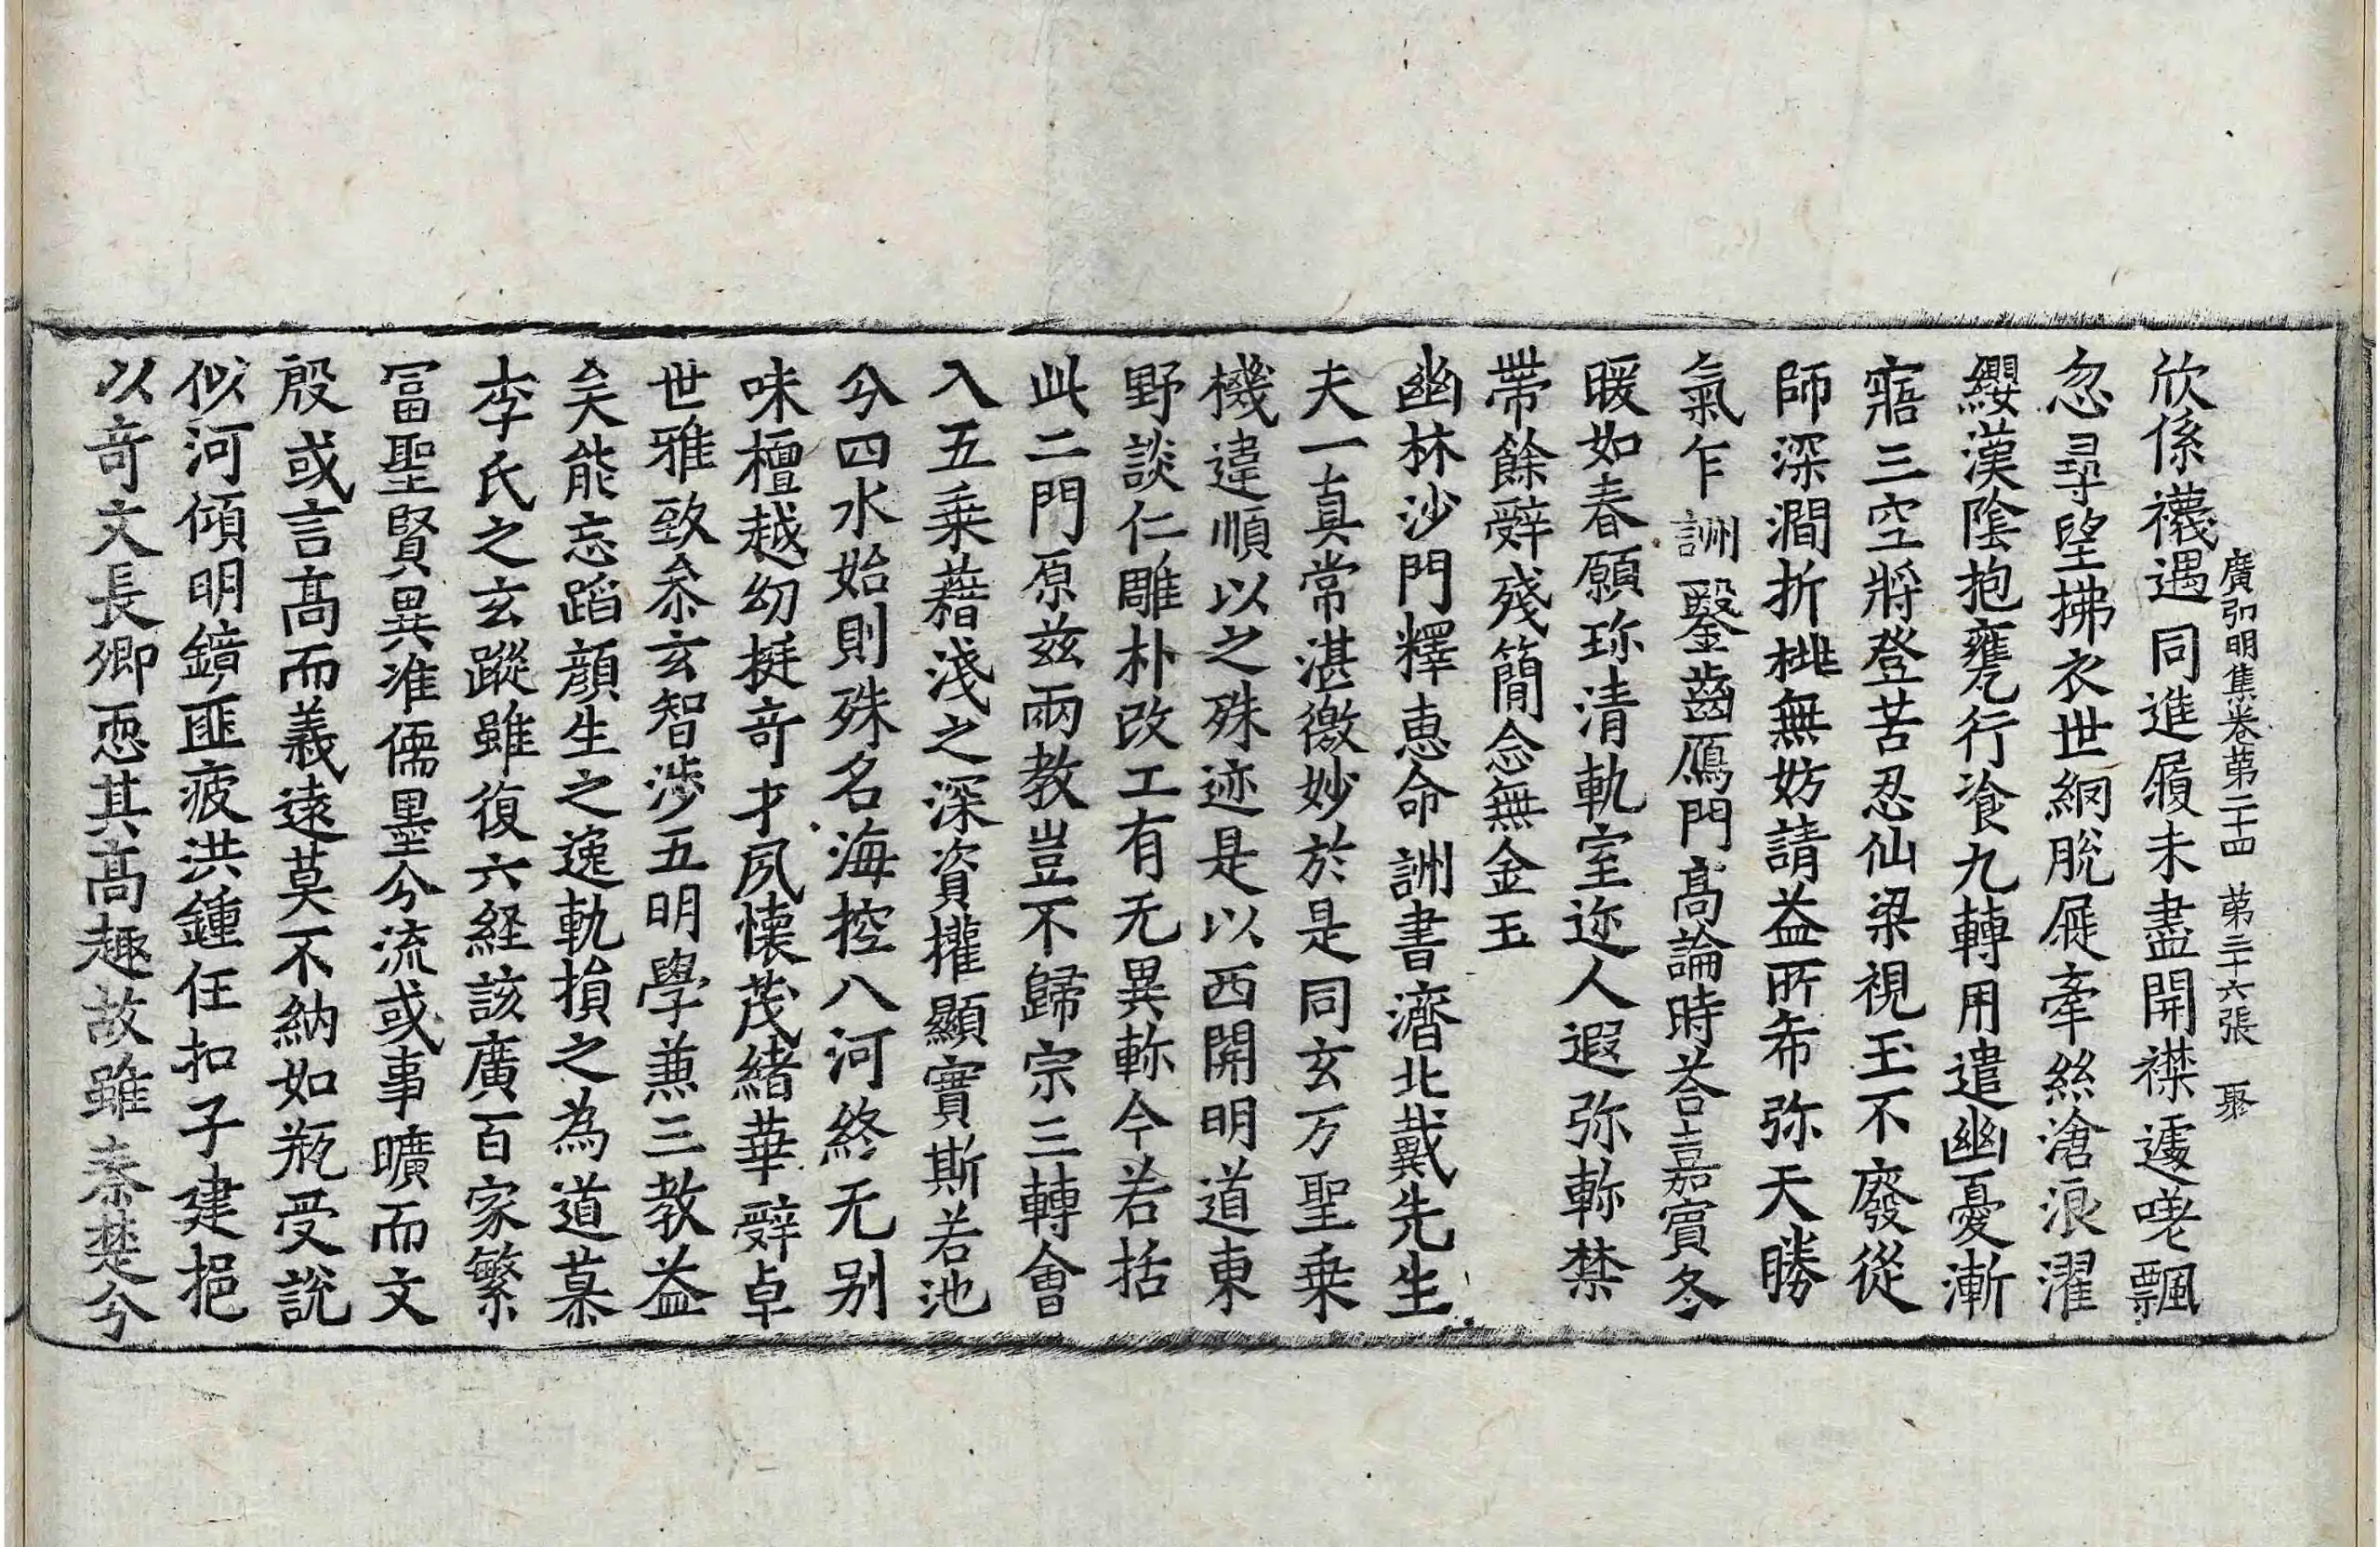 廣弘明集卷第二十四 第三十六張 聚
欣係襪遇同進履未盡開襟遽嗟飄
忽尋望拂衣世網脫屣牽絲滄浪濯
纓漢陰抱甕行飡九轉用遣幽憂漸
寤三空將登苦忍仙梁視玉不廢從
師深澗折桃無妨請益所希弥天勝
氣乍詶鑿齒鴈門高論時荅嘉賓冬
暖如春願珎清軌室迩人遐弥軫禁
帶餘辤殘簡念無金玉
幽林沙門釋惠命詶書濟北戴先生
夫一真常湛徼妙於是同玄万聖乗
機違順以之殊迹是以西開明道東
野談仁雕朴改工有无異軫今若括
此二門原兹兩教豈不歸宗三轉會
入五乗藉淺之深資權顯實斯若池
分四水始則殊名海控八河終无别
味檀越幼挺竒才夙懷茂緒華辤卓
世雅致叅玄智涉五明學兼三教益
矣能忘蹈顔生之逸軌損之為道慕
李氏之玄蹤雖復六経該廣百家繁
冨聖賢異准儒墨分流或事曠而文
殷或言高而義逺莫不納如瓶受説
似河傾明鏡匪疲洪鍾任扣子建挹
以竒文長卿恧其高趣故雖秦楚分